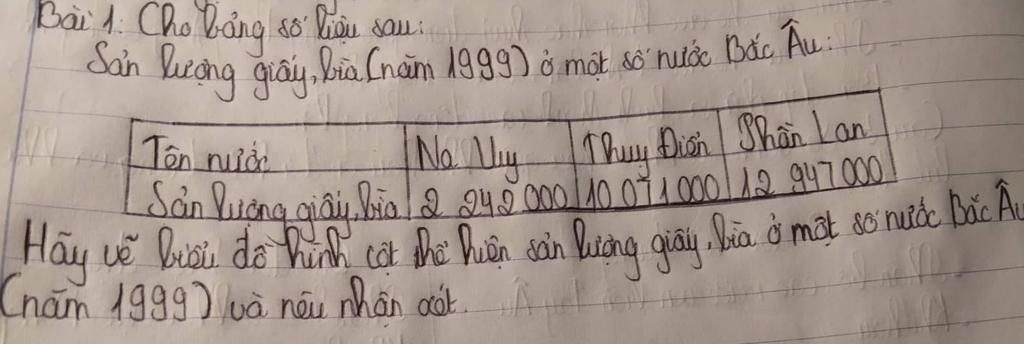 Bài 1: Cho bảng số liệu sau:
Sản lượng giấy, bìa (năm 1999) ở một số nước Bắc Âu:
Tên nước Na Uy Thuỵ Điển Phần Lan
Sản lượng giấy, bìa 2 242 000 10 071 000 12 947 000
Hãy vẽ biểu đồ hình cột thể hiện sản lượng giấy, bìa ở một số nước Bắc Âu
(năm 1999) và nêu nhận xét.